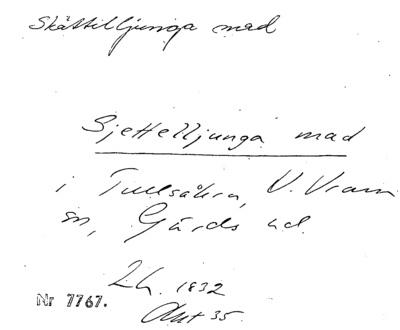 Skättilljunga mad
Sjettelljunga mad
i Tullsåkra, V. Vram
sn, Gärds hd.
Lh. 1832
Akt 35
Nr 7767.